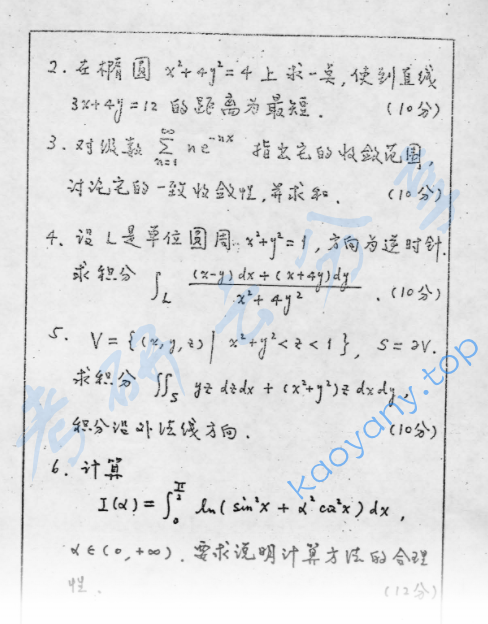 2. 在椭圆 x²+4y²=4 上求一点, 使到直线
3x+4y=12 的距离为最短. (10分)
3. 对级数 ∑_{n=1}^{∞} n e^{-nx} 指出它的收敛范围,
讨论它的一致收敛性, 并求和. (10分)
4. 设 L 是单位圆周 x²+y²=1, 方向为逆时针.
求积分 ∫_L \frac{(x-y)dx+(x+4y)dy}{x²+4y²}. (10分)
5. V={(x,y,z)| x²+y²<z<1}, S=∂V.
求积分 ∬_S yz dzdx+(x²+y²)z dxdy,
积分沿外法线方向. (10分)
6. 计算
I(α)=∫_0^{\frac{π}{2}} ln(sin²x+α²cos²x)dx,
α∈(0,+∞). 要求说明计算方法的合理
性. (12分)
考研云分享
kaoyany.top